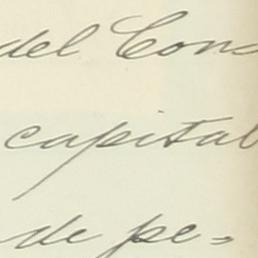 del Cons
capital
de pe=